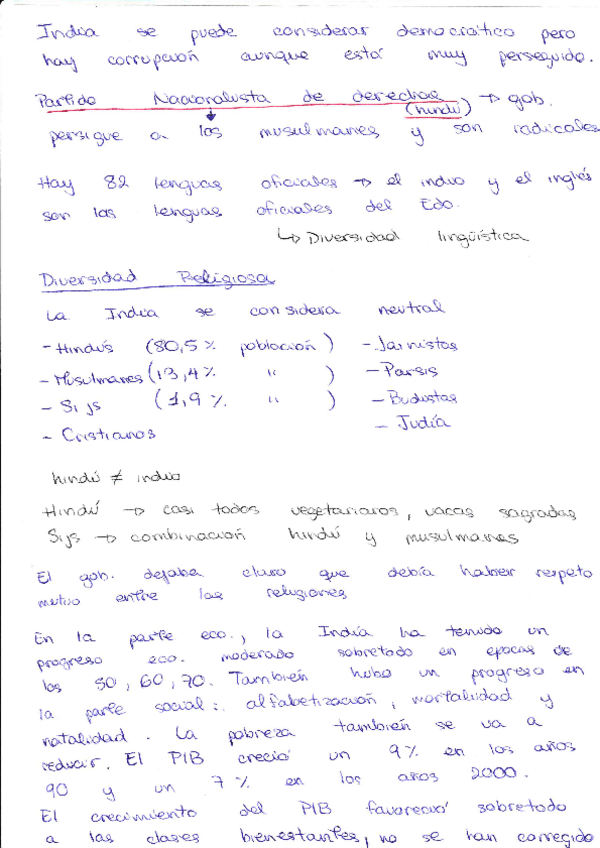 India se puede considerar democrático pero
hay corrupción aunque está muy perseguido.
Partido Nacionalista de derechas (hindú) → gob.
persigue a los musulmanes y son radicales
Hay 82 lenguas oficiales → el indio y el inglés
son las lenguas oficiales del Edo.
↳ Diversidad lingüística
Diversidad Religiosa
La India se considera neutral
- Hindús (80,5% población) - Jainistas
- Musulmanes (13,4% " ) - Parsis
- Sijs (1,9% " ) - Budistas
- Cristianos - Judía
hindú ≠ indio
Hindú → casi todos vegetarianos, vacas sagradas
Sijs → combinación hindú y musulmanes
El gob. dejaba claro que debía haber respeto
mutuo entre las religiones
En la parte eco., la India ha tenido un
progreso eco. moderado sobretodo en epocas de
los 50, 60, 70. También hubo un progreso en
la parte social: alfabetización, mortalidad y
natalidad. La pobreza también se va a
reducir. El PIB creció un 9% en los años
90 y un 7% en los años 2000.
El crecimiento del PIB favoreció sobretodo
a las clases bienestantes, no se han corregido